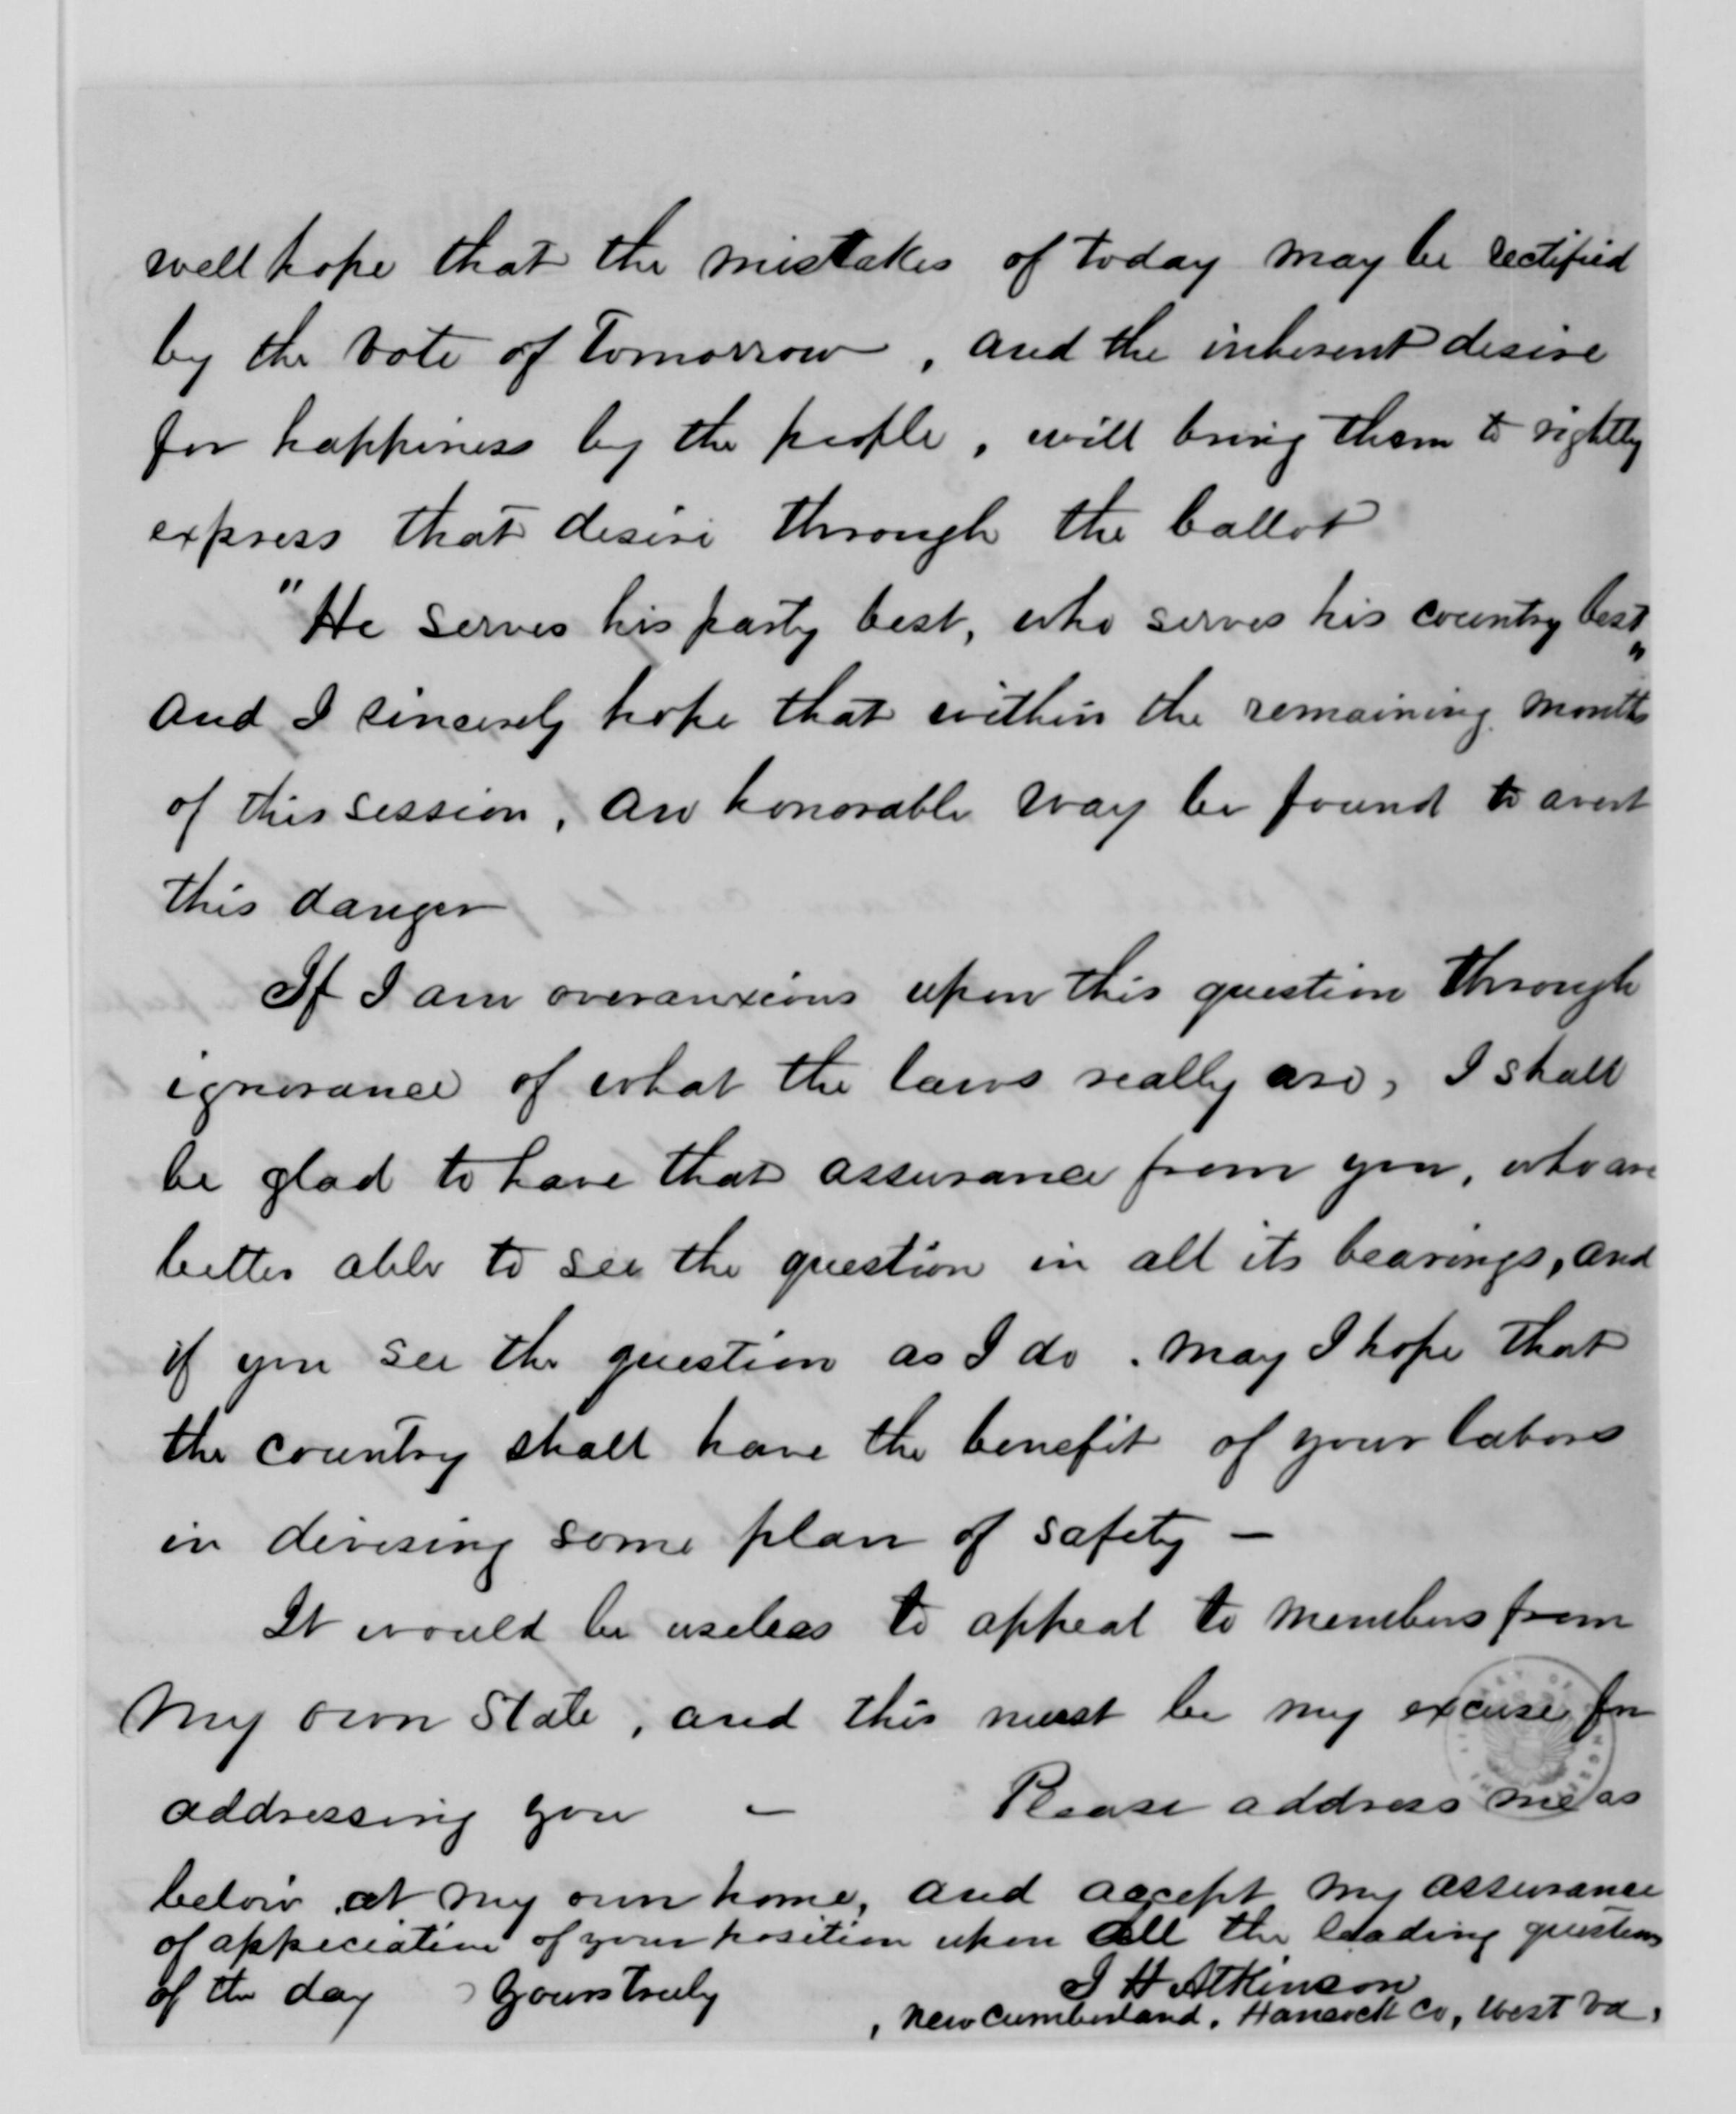 well hope that the mistakes of today may be rectified
by the vote of tomorrow, and the inherent desire
for happiness by the people, will bring them to rightly
express that desire through the ballot
"He serves his party best, who serves his country best"
and I sincerely hope that within the remaining months
of this session, an honorable way be found to avert
this danger
If I am overanxious upon this question through
ignorance of what the laws really are, I shall
be glad to have that assurance from you, who are
better able to see the question in all its bearings, and
if you see the question as I do. may I hope that
the country shall have the benefit of your labors
in devising some plan of safety —
It would be useless to appeal to members from
my own State, and this must be my excuse for
addressing you — Please address me as
below at my own home, and accept my assurance
of appreciation of your position upon all the leading questions
of the day Yours truly J H Atkinson
New Cumberland, Hancock Co, West Va,